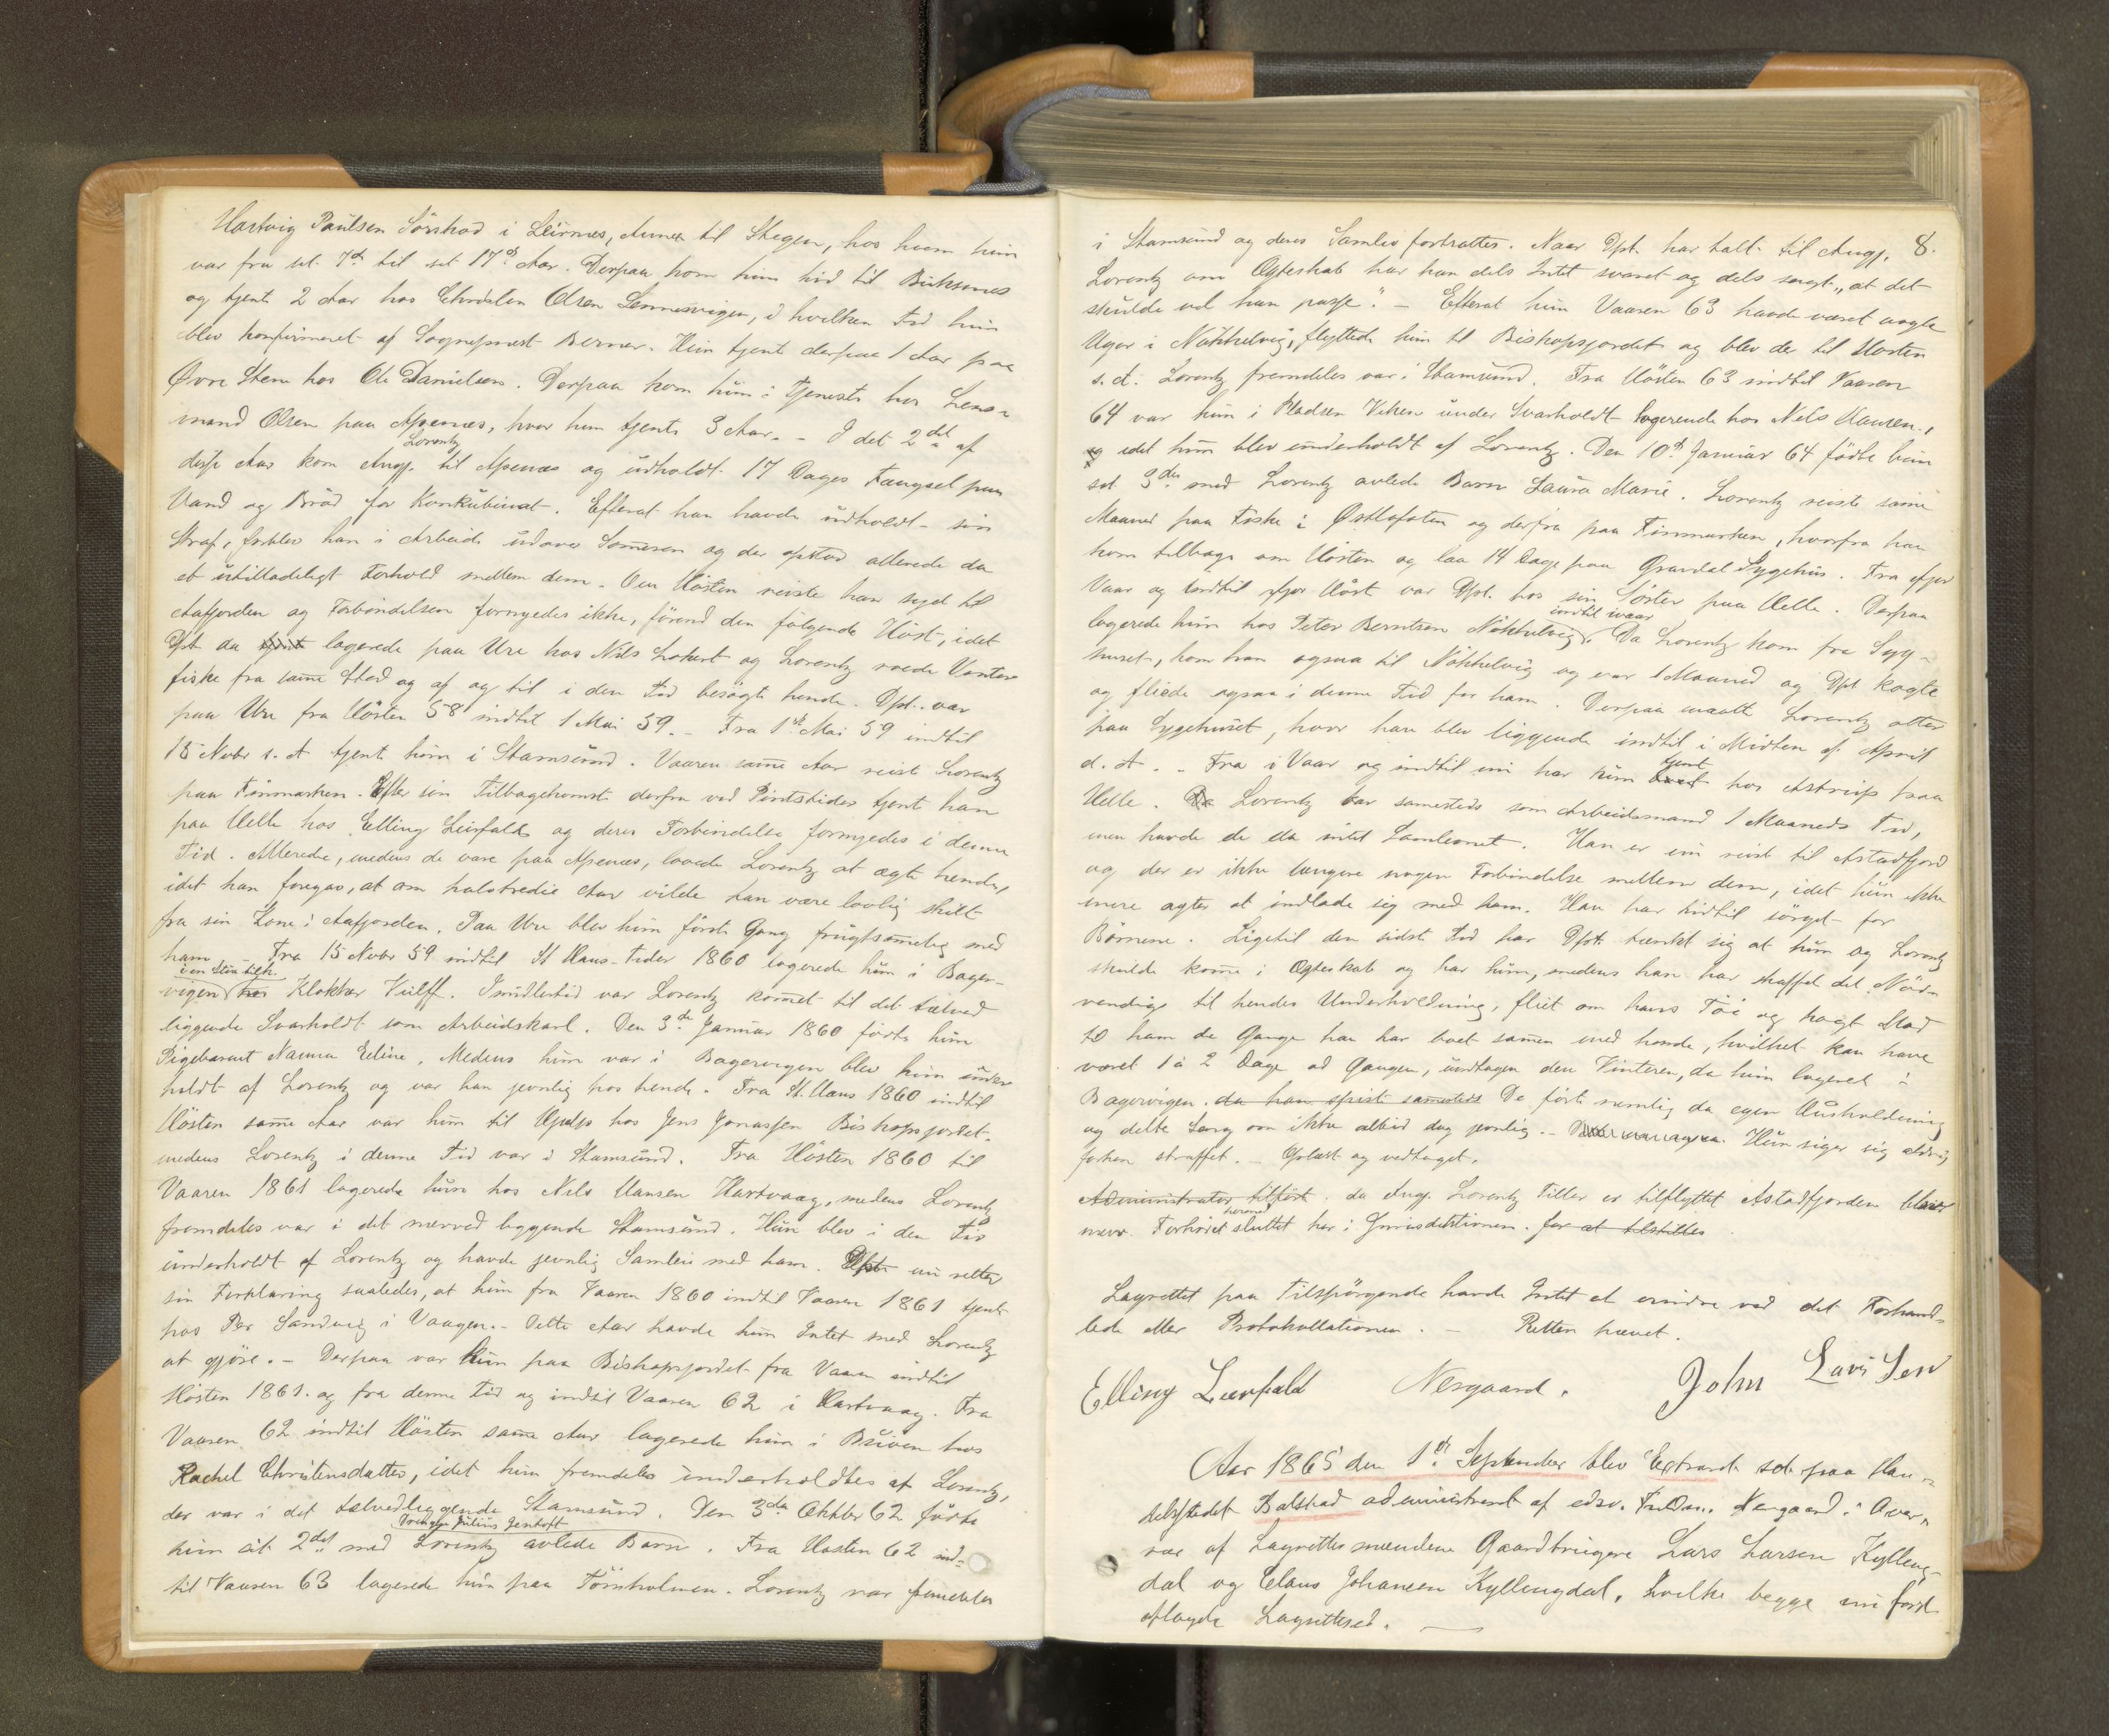 Hartvig Paulsen Sörstad i Leirnes, Annex til Stegen, hos hvem hun
var fra sit 7de til sit 17de Aar. Derpaa kom hun hid til Buksnes
og tjente 2 Aar hos Christen Olsen Sennesvigen, i hvilken Tid hun
blev konfirmeret af Sognepræst Berner. Hun tjente derpaa 1 Aar paa
Øvre Steen hos Ole Danielsen. Derpaa kom hun i Tjeneste hos Lens-
mand Olsen paa Apsenes, hvor hun tjente 3 Aar. - I det 2det af
Lorentz
disse Aar kom Angj. til Apsenes og udholdt 17 Dages Fængsel paa
Vand og Bröd for Konkubinat. Efterat han havde udholdt sin
Straf, forblev han i Arbeide udover Someren og der opstod allerede da
et utilladeligt Forhold mellem dem. Om Hösten reiste han syd til
Aafjorden og Forbindelsen fornyedes ikke, förend den fölgende Höst, idet
Dpt da logerede paa Ure hos Nils Lokert og Lorentz roede Vinter
fiske fra same Sted og af og til i den Tid besögte hende. Dpt. var
paa Ure fra Hösten 58 indtil 1 Mai 59. - Fra 1ste Mai 59 indtil
15 Novbr s. A tjente hun i Stamsund. Vaaren same Aar reiste Lorentz
paa Finmarken. Efter sin Tilbagekomst derfra ved Pintstider tjente han
paa Helle hos Elling Leirfald og deres Forbindelse fornyedes i denne
Tid. Allerede, medens de vare paa Apsenes, lovede Lorentz at ægte hende,
idet han foregav, at om halvtredie Aar vilde han være lovlig skilt
fra sin Kone i Aafjorden. Paa Ure blev hun förste Gang frugtsomelig med
ham - Fra 15 Novbr 59 indtil St Hans-Tider 1860 logerede hun i Bager-
i en Stue tilh.
vigen hos Klokker Wulff. Imidlertid var Lorentz komet til det tætved
liggende Svarholdt som Arbeidskarl. Den 3de Januar 1860 födte hun
Pigebarnet Nanna Eeline. Medens hun var i Bagervigen blev hun under
holdt af Lorentz og var han jevnlig hos hende. Fra St. Hans 1860 indtil
Hösten same Aar var hun til Hjælp hos Jens Jonassen Bishopsjordet.
medens Lorentz i denne Tid var i Stamsund. Fra Hösten 1860 til
Vaaren 1861 logerede hun hos Nils Hansen Hartvaag, medens Lorentz
fremdeles var i det nærved liggende Stamsund. Hun blev i den Tid
underholdt af Lorentz og havde jevnlig Samleie med ham. Dpt. nu retter
sin Forklaring saaledes, at hun fra Vaaren 1860 indtil Vaaren 1861 tjente
hos Per Sandvig i Vaagen. - Dette Aar havde hun Intet med Lorentz
at gjöre. - Derpaa var hun paa Bishopsjordet fra Vaaren indtil
Hösten 1861. og fra denne Tid og indtil Vaaren 62 i Hartvaag. Fra
Vaaren 62 indtil Hösten same Aar logerede hun i Buöen hos
Rachel Christensdatter, idet hun fremdeles underholdtes af Lorentz,
der var i det tætvedliggende Stamsund. Den 3die Oktbr 62 födte
Drengen Julius Jentoft
hun sit 2det med Lorentz avlede Barn. Fra Hösten 62 ind-
til Vaaren 63 logerede hun paa Törnholmen. Lorentz var fremdeles
8.
i Stamsund og deres Samliv fortsattes. Naar Dpt. har talt til Angj.
Lorentz om Ægteskab har han dels Intet svaret og dels sagt "at det
skulde vel han passe". - Efterat hun Vaaren 63 havde været nogle
Uger i Nökkelvig, flyttede hun til Bishopsjordet og blev der til Hösten
s. A. Lorentz fremdeles var i Stamsund. Fra Hösten 63 indtil Vaaren
64 var hun i Pladsen Viken under Svarholdt logerende hos Nils Hansen,
og idet hun blev underholdt af Lorentz. Den 10de Januar 64 födte hun
sit 3die med Lorentz avlede Barn Laura Marie. Lorentz reiste same
Maaned paa Fiske i Østlofoten og derfra paa Finmarken, hvorfra han
kom tilbage om Hösten og laa 14 Dage paa Gravdal Sygehus. Fra ifjor
Vaar og indtil ifjor Höst var Dpt. hos sin Söster paa Helle. Derpaa
indtil ivaar
logerede hun hos Peter Berntsen Nökkelvig. Da Lorentz kom fra Syge-
huset, kom han ogsaa til Nökkelvig og var 1 Maaned og Dpt kogte
og fliede ogsaa i denne Tid for ham. Derpaa maatte Lorentz atter
paa Sygehuset, hvor han blev liggende indtil i Midten af April
tjent
d. A. - Fra i Vaar og indtil nu har hun hos Astrup paa
Helle. Lorentz var samesteds som Arbeidsmand 1 Maaneds Tid,
men havde de da intet Samleie. Han er nu reist til Astadfjord
og der er ikke længere nogen Forbindelse mellem dem, idet hun ikke
mere agter at indlade sig med ham. Han har hidtil sörget for
Börnene. Ligetil den sidste Tid har Dpt. tænkt sig at hun og Lorentz
skulde kome i Ægteskab og har hun, medens han har skaffet det Nöd-
vendige til hendes Underholdning, fliet om hans Töi og kogt Mad
til ham de Gange han har boet samen med hende, hvilket kan have
været 1 à 2 Dage ad Gangen, undtagen den Vinteren, da hun logeret i
Bagervigen. da han spiste samesteds De förte nemlig da egen Husholdning
og delte Seng om ikke altid dog jevnlig. - Hun siger sig aldrig
forhen straffet. - Oplæst og vedtaget.
Administrator tilförte da Angj. Lorentz Tiller er tilflyttet Astadfjorden blev
herved
Forhöret sluttet her i Jurisdiktionen. for at tilstilles
Lagrettet paa Tilspörgende havde Intet at erindre ved det Forhand-
lede eller Protokollationen. - Retten hævet.
Elling Leirfald Nergaard. John Larsen
Aar 1865 den 1te September blev Extraret sat paa Han-
delsstedet Balstad administreret af edsv. Fuldm. Nergaard i Over-
vær af Lagrettesmændene Gaardbrugere Lars Larsen Kylling-
dal og Claus Johansen Kyllingdal, hvilke begge nu förste
aflagde Lagretteed.